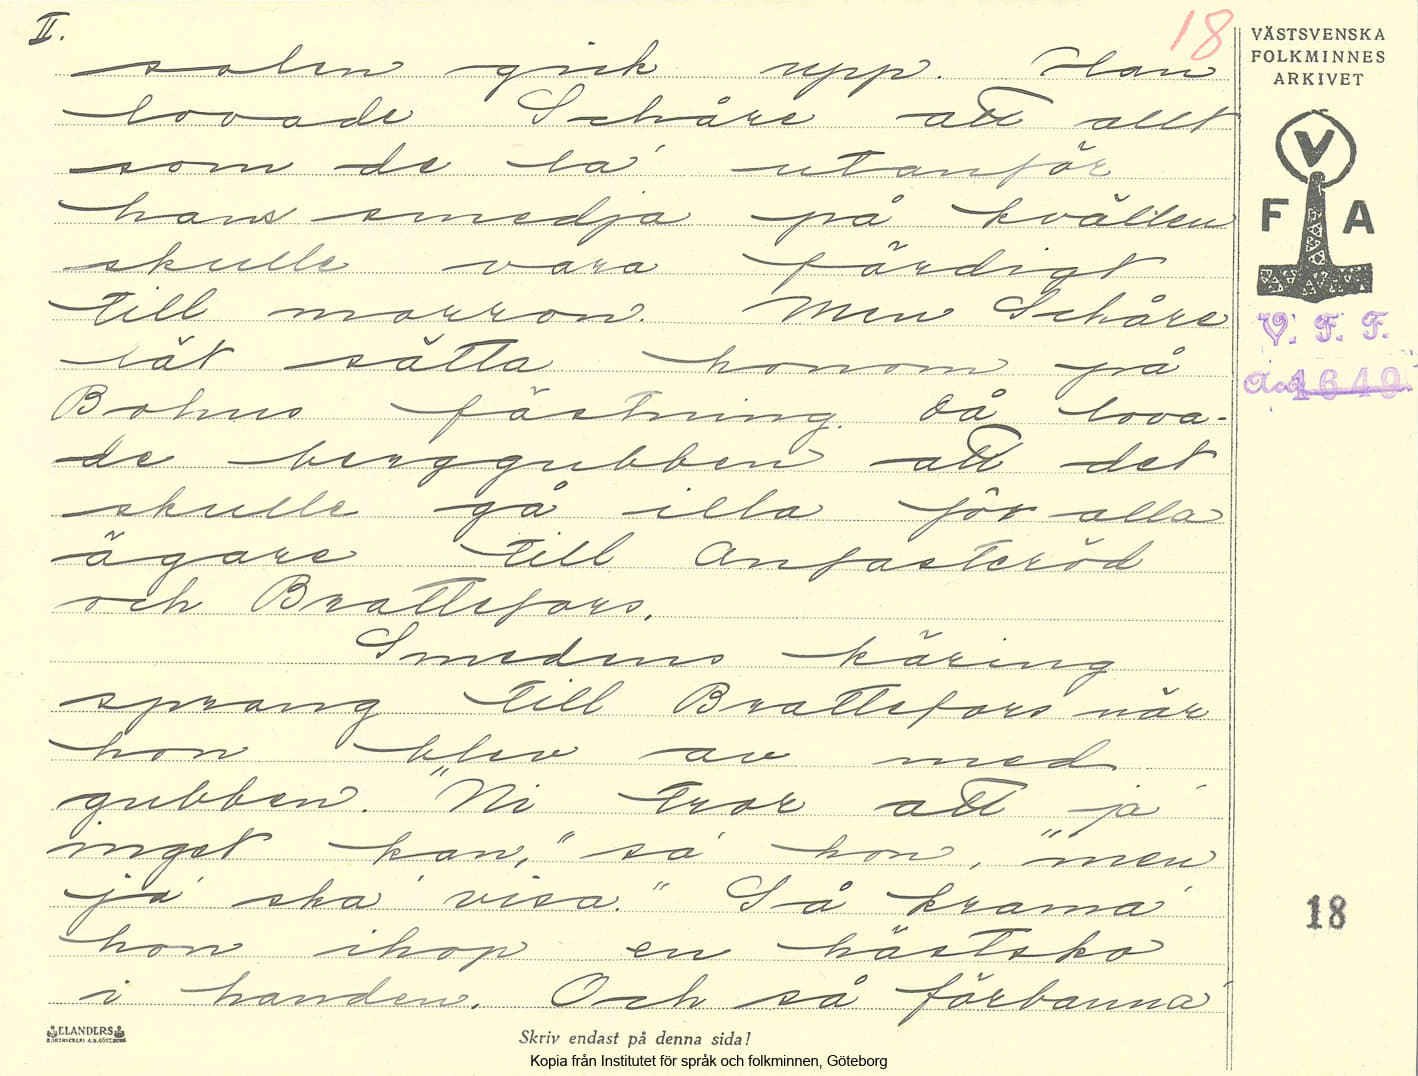 II.
18
solen gick upp. Han
lovade Schåre att allt
som de la' utanför
hans smedja på kvällen
skulle vara färdigt
till morron. Men Schåre
lät sätta honom på
Bohus fästning. Då lova-
de berggubben att det
skulle gå illa för alla
ägare till Anfasteröd
och Brattefors.
Smedens käring
sprang till Brattefors när
hon blev av med
gubben. "Ni tror att ja'
inget kan," sa' hon, "men
ja' ska' visa." Så krama'
hon ihop en hästsko
i handen. Och så förbanna'
VÄSTSVENSKA
FOLKMINNES
ARKIVET
V
F A
V. F. F.
Acc 1640
18
ELANDERS
Skriv endast på denna sida!
Kopia från Institutet för språk och folkminnen, Göteborg